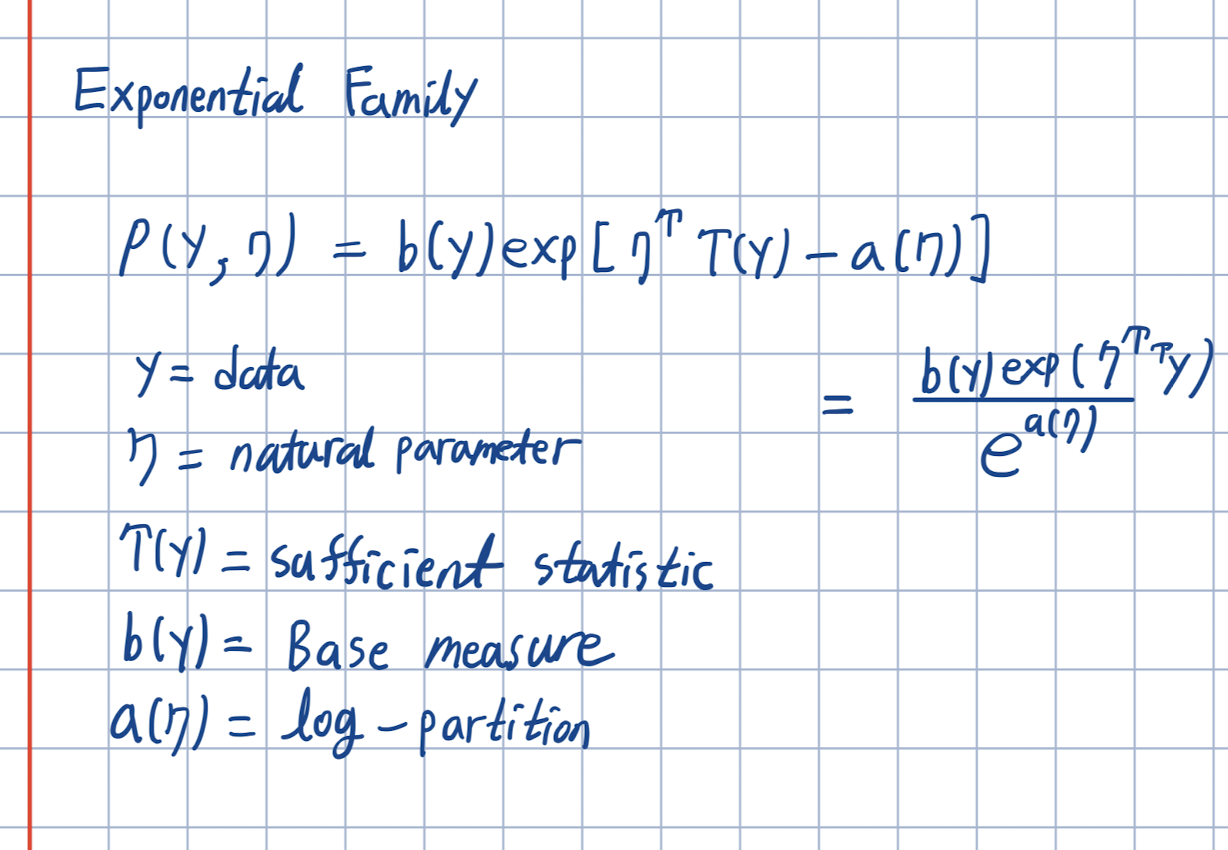 Exponential Family
P(y, η) = b(y) exp[η^T T(y) - a(η)]
y = data
= b(y) exp(η^T Ty) / e^a(η)
η = natural parameter
T(y) = sufficient statistic
b(y) = Base measure
a(η) = log-partition